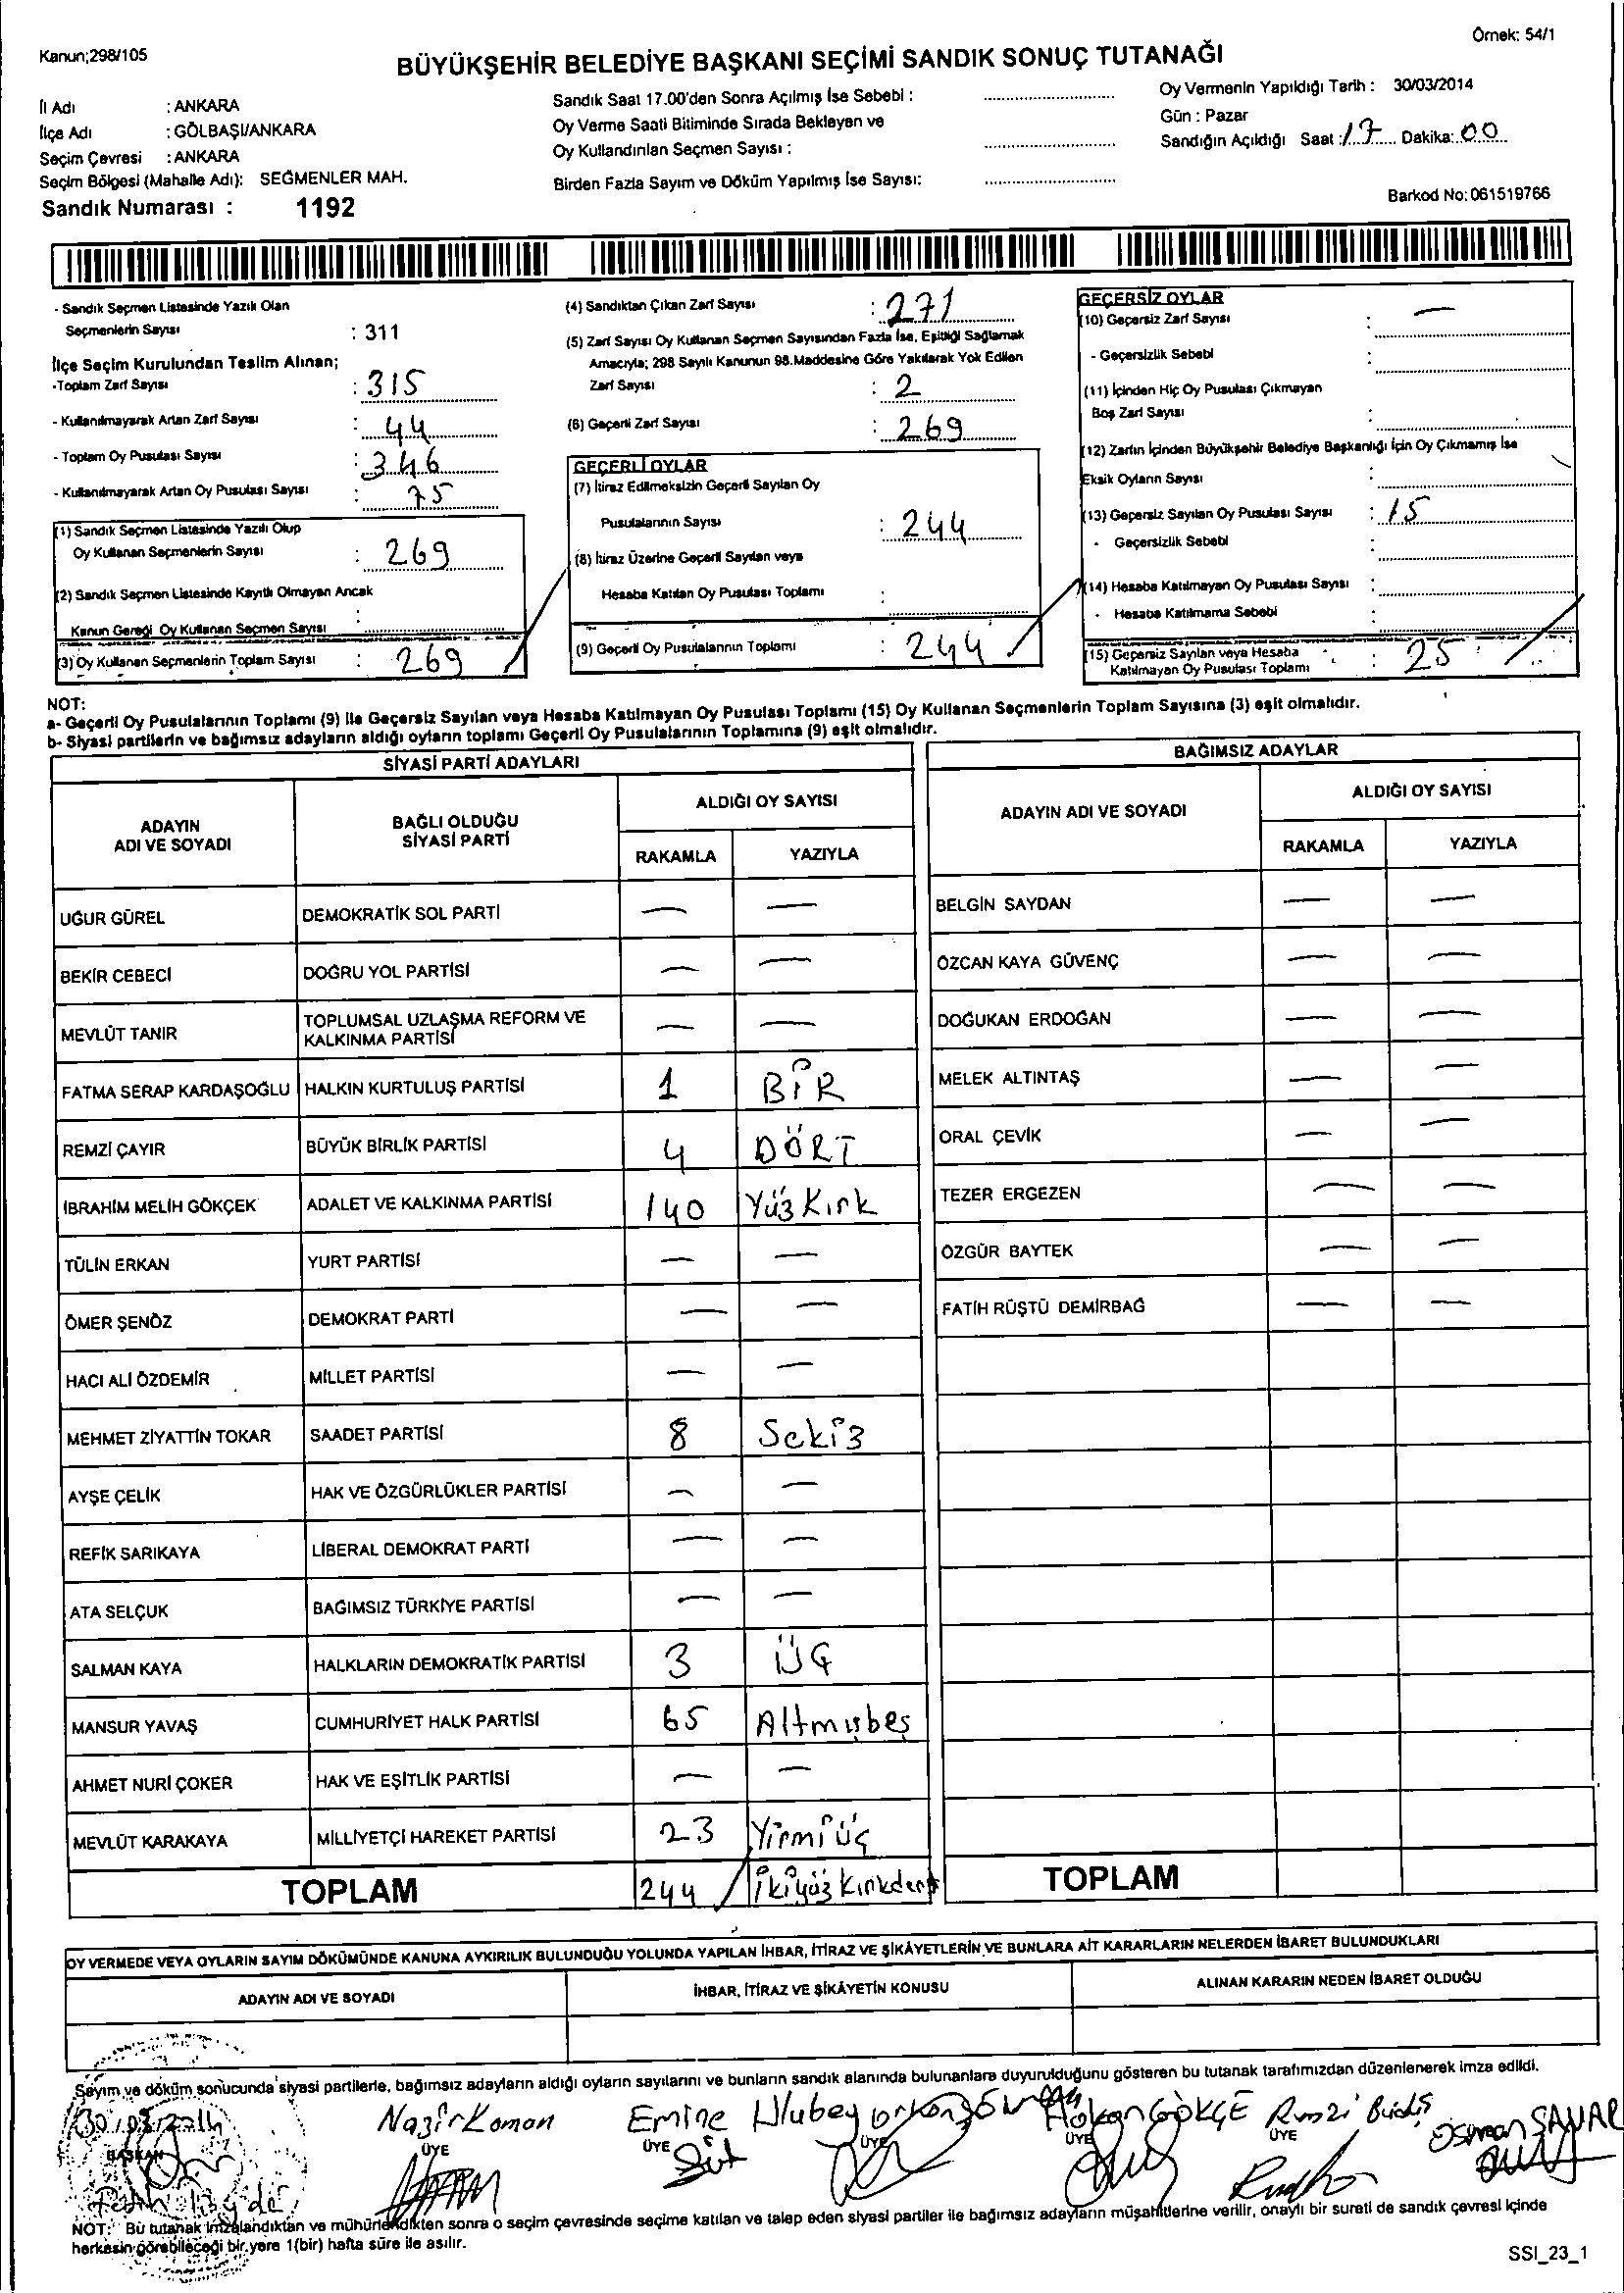 Kanun;298/105
Örnek: 54/1
BÜYÜKŞEHİR BELEDİYE BAŞKANI SEÇİMİ SANDIK SONUÇ TUTANAĞI
İl Adı : ANKARA
İlçe Adı : GÖLBAŞI/ANKARA
Seçim Çevresi : ANKARA
Seçim Bölgesi (Mahalle Adı): SEĞMENLER MAH.
Sandık Numarası : 1192
Sandık Saat 17.00'den Sonra Açılmış İse Sebebi :
Oy Verme Saati Bitiminde Sırada Bekleyen ve
Oy Kullandırılan Seçmen Sayısı :
Birden Fazla Sayım ve Döküm Yapılmış İse Sayısı:
Oy Vermenin Yapıldığı Tarih : 30/03/2014
Gün : Pazar
Sandığın Açıldığı Saat : 17 Dakika: 00
Barkod No: 061519766
- Sandık Seçmen Listesinde Yazılı Olan
Seçmenlerin Sayısı : 311
İlçe Seçim Kurulundan Teslim Alınan;
-Toplam Zarf Sayısı : 315
- Kullanılmayarak Artan Zarf Sayısı : 44
- Toplam Oy Pusulası Sayısı : 346
- Kullanılmayarak Artan Oy Pusulası Sayısı : 75
(1) Sandık Seçmen Listesinde Yazılı Olup
Oy Kullanan Seçmenlerin Sayısı : 269
(2) Sandık Seçmen Listesinde Kayıtlı Olmayan Ancak
Kanun Gereği Oy Kullanan Seçmen Sayısı :
(3) Oy Kullanan Seçmenlerin Toplam Sayısı : 269
(4) Sandıktan Çıkan Zarf Sayısı : 271
(5) Zarf Sayısı Oy Kullanan Seçmen Sayısından Fazla İse, Eşitliği Sağlamak
Amacıyla; 298 Sayılı Kanunun 98.Maddesine Göre Yakılarak Yok Edilen
Zarf Sayısı : 2
(6) Geçerli Zarf Sayısı : 269
GEÇERLİ OYLAR
(7) İtiraz Edilmeksizin Geçerli Sayılan Oy
Pusulalarının Sayısı : 244
(8) İtiraz Üzerine Geçerli Sayılan veya
Hesaba Katılan Oy Pusulası Toplamı :
(9) Geçerli Oy Pusulalarının Toplamı : 244
GEÇERSİZ OYLAR
(10) Geçersiz Zarf Sayısı : —
- Geçersizlik Sebebi :
(11) İçinden Hiç Oy Pusulası Çıkmayan
Boş Zarf Sayısı :
(12) Zarfın İçinden Büyükşehir Belediye Başkanlığı İçin Oy Çıkmamış İse
Eksik Oyların Sayısı :
(13) Geçersiz Sayılan Oy Pusulası Sayısı : 15
- Geçersizlik Sebebi :
(14) Hesaba Katılmayan Oy Pusulası Sayısı :
- Hesaba Katılmama Sebebi :
(15) Geçersiz Sayılan veya Hesaba
Katılmayan Oy Pusulası Toplamı : 25
NOT:
a- Geçerli Oy Pusulalarının Toplamı (9) ile Geçersiz Sayılan veya Hesaba Katılmayan Oy Pusulası Toplamı (15) Oy Kullanan Seçmenlerin Toplam Sayısına (3) eşit olmalıdır.
b- Siyasi partilerin ve bağımsız adayların aldığı oyların toplamı Geçerli Oy Pusulalarının Toplamına (9) eşit olmalıdır.
SİYASİ PARTİ ADAYLARI
ADAYIN ADI VE SOYADI
BAĞLI OLDUĞU SİYASİ PARTİ
ALDIĞI OY SAYISI
RAKAMLA YAZIYLA
UĞUR GÜREL DEMOKRATİK SOL PARTİ — —
BEKİR CEBECİ DOĞRU YOL PARTİSİ — —
MEVLÜT TANIR TOPLUMSAL UZLAŞMA REFORM VE KALKINMA PARTİSİ — —
FATMA SERAP KARDAŞOĞLU HALKIN KURTULUŞ PARTİSİ 1 BİR
REMZİ ÇAYIR BÜYÜK BİRLİK PARTİSİ 4 DÖRT
İBRAHİM MELİH GÖKÇEK ADALET VE KALKINMA PARTİSİ 140 Yüz Kırk
TÜLİN ERKAN YURT PARTİSİ — —
ÖMER ŞENÖZ DEMOKRAT PARTİ — —
HACI ALİ ÖZDEMİR MİLLET PARTİSİ — —
MEHMET ZİYATTİN TOKAR SAADET PARTİSİ 8 Sekiz
AYŞE ÇELİK HAK VE ÖZGÜRLÜKLER PARTİSİ — —
REFİK SARIKAYA LİBERAL DEMOKRAT PARTİ — —
ATA SELÇUK BAĞIMSIZ TÜRKİYE PARTİSİ — —
SALMAN KAYA HALKLARIN DEMOKRATİK PARTİSİ 3 ÜÇ
MANSUR YAVAŞ CUMHURİYET HALK PARTİSİ 65 Altmışbeş
AHMET NURİ ÇOKER HAK VE EŞİTLİK PARTİSİ — —
MEVLÜT KARAKAYA MİLLİYETÇİ HAREKET PARTİSİ 23 Yirmi üç
TOPLAM 244 İkiyüz Kırkdört
BAĞIMSIZ ADAYLAR
ADAYIN ADI VE SOYADI
ALDIĞI OY SAYISI
RAKAMLA YAZIYLA
BELGİN SAYDAN — —
ÖZCAN KAYA GÜVENÇ — —
DOĞUKAN ERDOĞAN — —
MELEK ALTINTAŞ — —
ORAL ÇEVİK — —
TEZER ERGEZEN — —
ÖZGÜR BAYTEK — —
FATİH RÜŞTÜ DEMİRBAĞ — —
TOPLAM
OY VERMEDE VEYA OYLARIN SAYIM DÖKÜMÜNDE KANUNA AYKIRILIK BULUNDUĞU YOLUNDA YAPILAN İHBAR, İTİRAZ VE ŞİKÂYETLERİN VE BUNLARA AİT KARARLARIN NELERDEN İBARET BULUNDUKLARI
ADAYIN ADI VE SOYADI
İHBAR, İTİRAZ VE ŞİKÂYETİN KONUSU
ALINAN KARARIN NEDEN İBARET OLDUĞU
Sayım ve döküm sonucunda siyasi partilerle, bağımsız adayların aldığı oyların sayılarını ve bunların sandık alanında bulunanlara duyurulduğunu gösteren bu tutanak tarafımızdan düzenlenerek imza edildi.
30/03/2014 Nazir Koman Emine Hakan GÖKÇE Osman
BAŞKAN ÜYE ÜYE ÜYE ÜYE ÜYE
NOT: Bu tutanak imzalandıktan ve mühürlendikten sonra o seçim çevresinde seçime katılan ve talep eden siyasi partiler ile bağımsız adayların müşahitlerine verilir, onaylı bir sureti de sandık çevresi içinde
herkesin görebileceği bir yere 1(bir) hafta süre ile asılır.
SSI_23_1